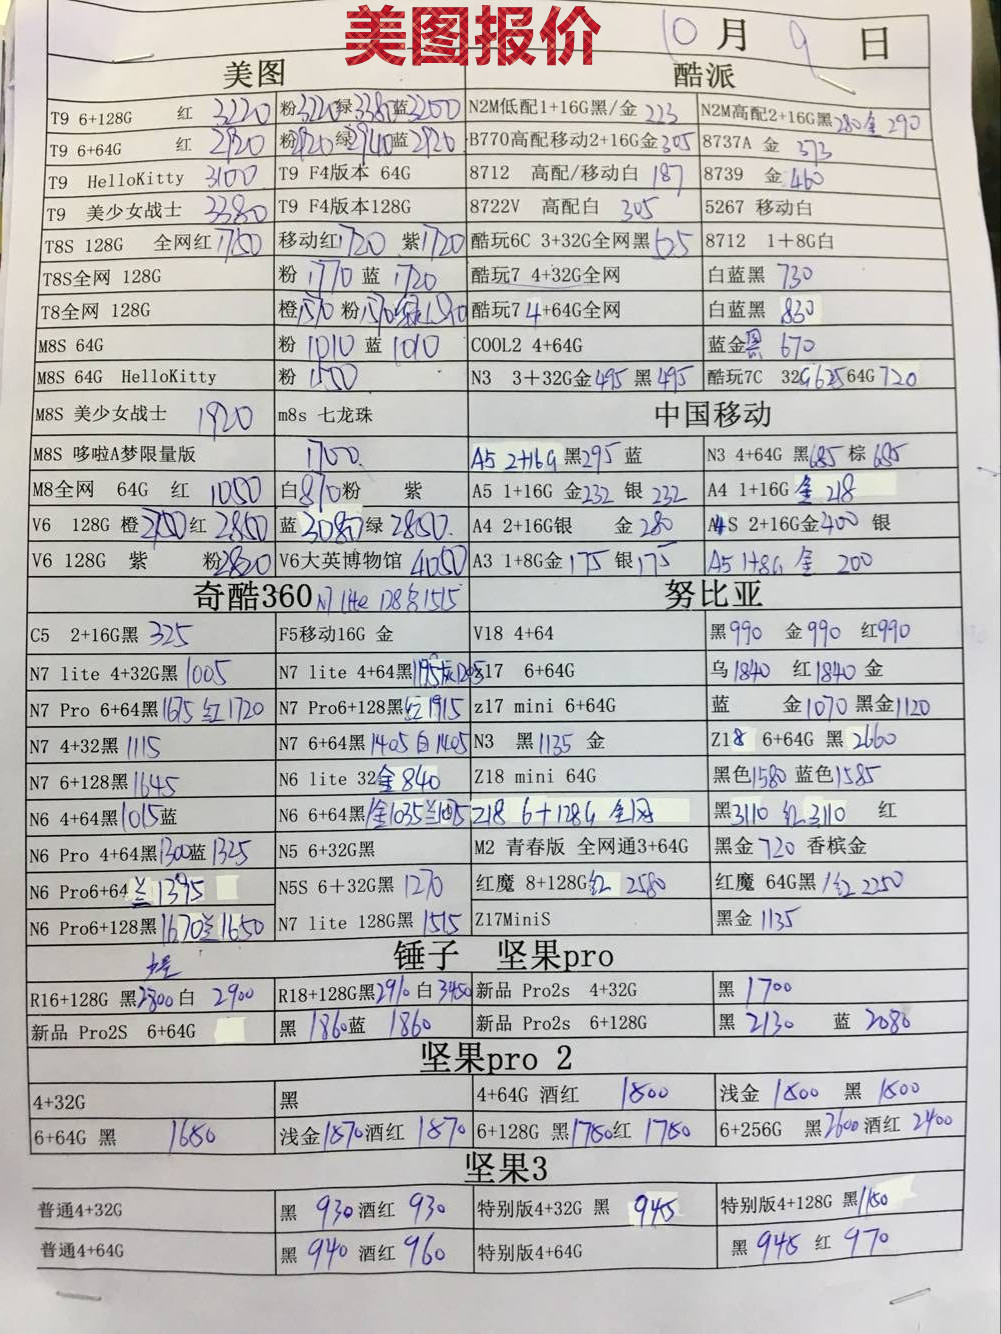 美图报价
10月9日
美图 酷派
T9 6+128G 红 3220 粉3220绿3380蓝3200 N2M低配1+16G黑/金 223 N2M高配2+16G黑280金 290
T9 6+64G 红 2920 粉2920绿2940蓝2920 B770高配移动2+16G金305 8737A 金 373
T9 HelloKitty 3100 T9 F4版本 64G 8712 高配/移动白 187 8739 金 460
T9 美少女战士 3380 T9 F4版本128G 8722V 高配白 305 5267 移动白
T8S 128G 全网红1750 移动红1720 紫1720 酷玩6C 3+32G全网黑525 8712 1+8G白
T8S全网 128G 粉 1770 蓝 1720 酷玩7 4+32G全网 白蓝黑 730
T8全网 128G 橙1570 粉1570绿1590 酷玩7 4+64G全网 白蓝黑 830
M8S 64G 粉 1010 蓝 1010 COOL2 4+64G 蓝金黑 670
M8S 64G HelloKitty 粉 1500 N3 3+32G金495 黑495 酷玩7C 32G625 64G720
M8S 美少女战士 1920 m8s 七龙珠 中国移动
M8S 哆啦A梦限量版 1700. A5 2+16G 黑295 蓝 N3 4+64G 黑685 棕 685
M8全网 64G 红 1050 白870粉 紫 A5 1+16G 金232 银 232 A4 1+16G 金 218
V6 128G 橙2100红 2800 蓝 3080绿 2800. A4 2+16G银 金 280 A4S 2+16G金400 银
V6 128G 紫 粉2820 V6大英博物馆 4050 A3 1+8G金175 银175 A5 1+8G 金 200
奇酷360 N7 lite 128G 1515 努比亚
C5 2+16G黑 325 F5移动16G 金 V18 4+64 黑990 金990 红990
N7 lite 4+32G黑1005 N7 lite 4+64黑1195灰1205 z17 6+64G 乌1840 红1840 金
N7 Pro 6+64黑1675 红1720 N7 Pro6+128黑红1915 z17 mini 6+64G 蓝 金1070 黑金1120
N7 4+32黑1115 N7 6+64黑1405白1405 N3 黑1135 金 Z18 6+64G 黑 2660
N7 6+128黑1645 N6 lite 32金840 Z18 mini 64G 黑色1580 蓝色1585
N6 4+64黑1015蓝 N6 6+64黑/金1035兰1015 Z18 6+128G 全网 黑3110 红3110 红
N6 Pro 4+64黑1300蓝1325 N5 6+32G黑 M2 青春版 全网通3+64G 黑金 720 香槟金
N6 Pro6+64 兰 1395 N5S 6+32G黑 1270 红魔 8+128G红 2580 红魔 64G黑/红2250
N6 Pro6+128黑1670兰1650 N7 lite 128G黑 1515 Z17MiniS 黑金 1135
锤子 坚果pro
R16+128G 黑2800白 2900 R18+128G黑2910 白3450 新品 Pro2s 4+32G 黑 1700
新品 Pro2S 6+64G 黑 1860蓝 1860 新品 Pro2s 6+128G 黑 2130 蓝 2080
坚果pro 2
4+32G 黑 4+64G 酒红 1800 浅金 1800 黑 1800
6+64G 黑 1680 浅金1870酒红 1870 6+128G 黑1780红 1780 6+256G 黑2600酒红 2400
坚果3
普通4+32G 黑 930 酒红 930 特别版4+32G 黑 945 特别版4+128G 黑1180
普通4+64G 黑 940 酒红 960 特别版4+64G 黑 945 红 970